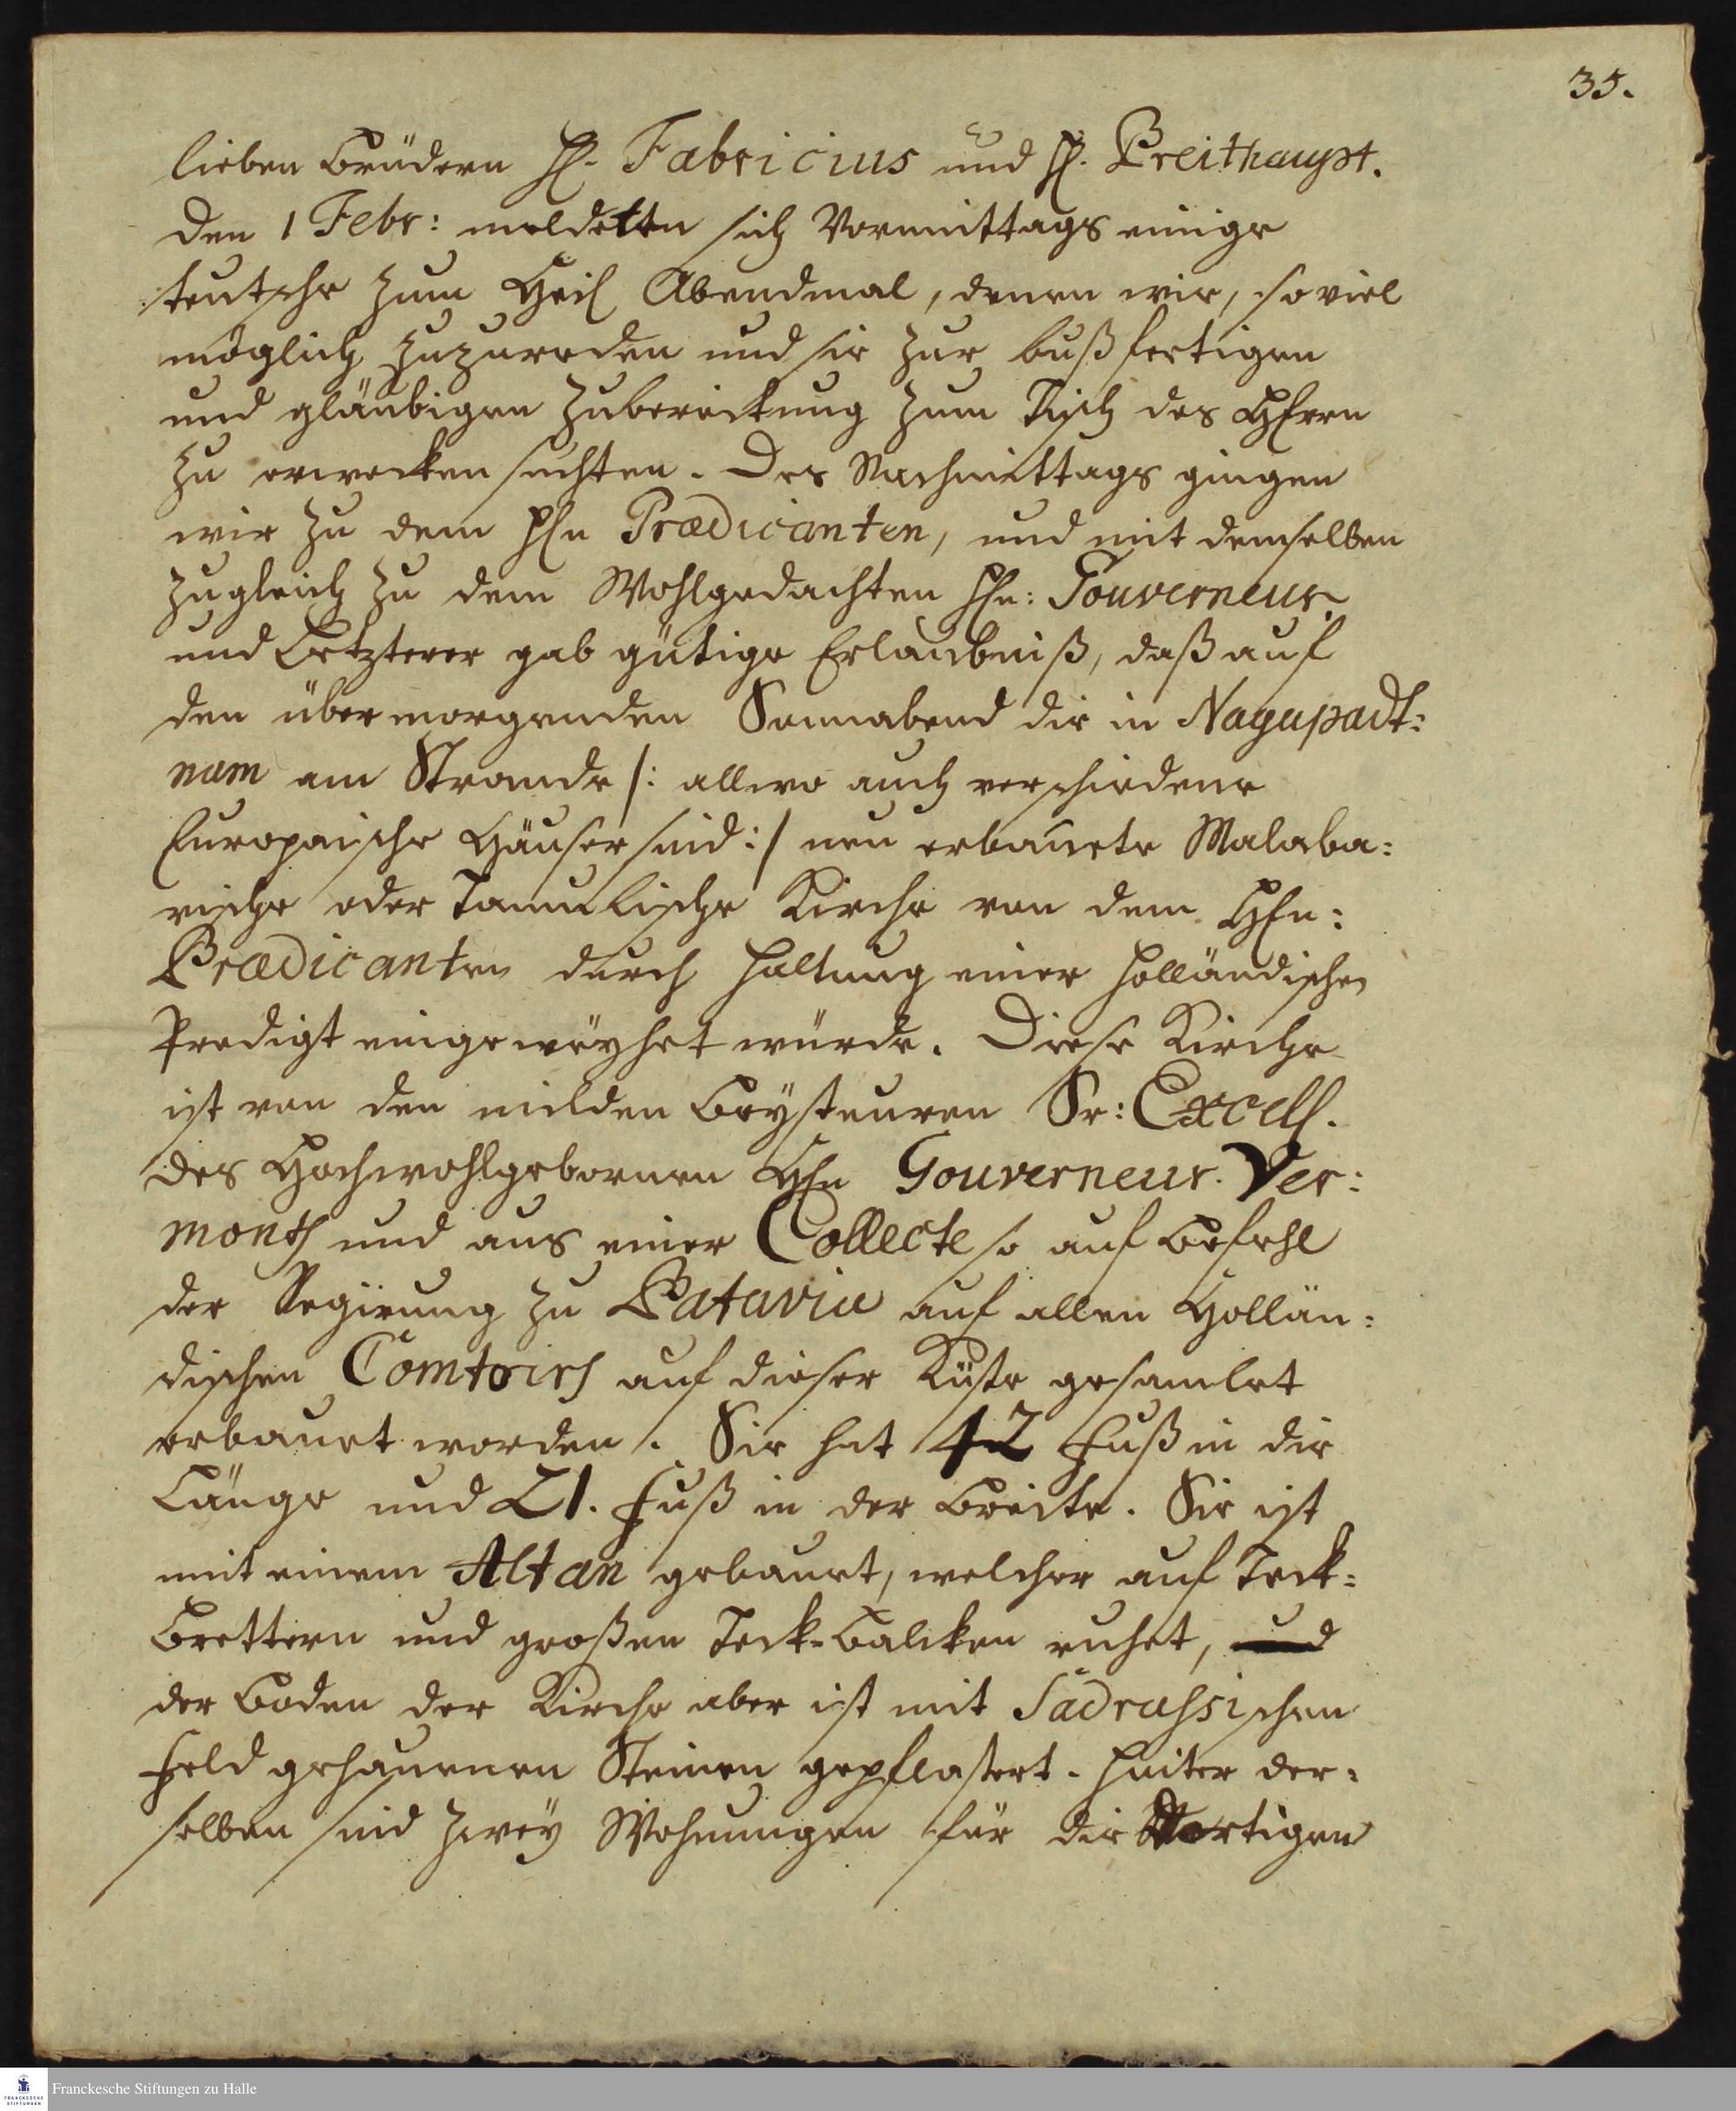 35.
lieben Brüdern H. Fabricius und H. Breithaupt.
Den 1 Febr: meldeten sich Vormittags einige
teutsche zum Heil Abendmal, denen wir, so viel
möglich zuzureden und sie zur bußfertigen
und gläubigen Zubereitung zum Tisch des HErrn
zu erwecken suchten. Des Nachmittags gingen
wir zu dem Hln Prædicanten, und mit demselben
zugleich zu dem Wohlgedachten Hln: Gouverneur.
und Letzterer gab gütige Erlaubniß, daß auf
den übermorgenden Sonnabend die in Nagapadt:
nam am Strande /: allwo auch verschiedene
Europaische Häuser sind :/ neu erbauete Malaba:
rische oder Tamulische Kirche von dem HEn:
Prædicanten durch Haltung einer Holländischen
Predigt eingeweyhet würde. Diese Kirche
ist von den milden Beysteuren Sr: Excell.
des Hochwohlgebornen HEn Gouverneur. Ver:
monts und aus einer Collecte so auf Befehl
der Regirung zu Batavia auf allen Hollän:
dischen Comtoirs auf dieser Küste gesamlet
erbauet worden. Sie hat 42 Fuß in die
Länge und 21. Fuß in der Breite. Sie ist
mit einem Altan gebauet, welcher auf Teck-
Brettern und großen Teck-Balcken ruhet, und
der Boden der Kirche aber ist mit Sadrassischen
Feld gehauenen Steinen gepflastert. Hinter der-
selben sind zwey Wohnungen für die dortigen
Franckesche Stiftungen zu Halle
FRANCKESCHE
STIFTUNGEN